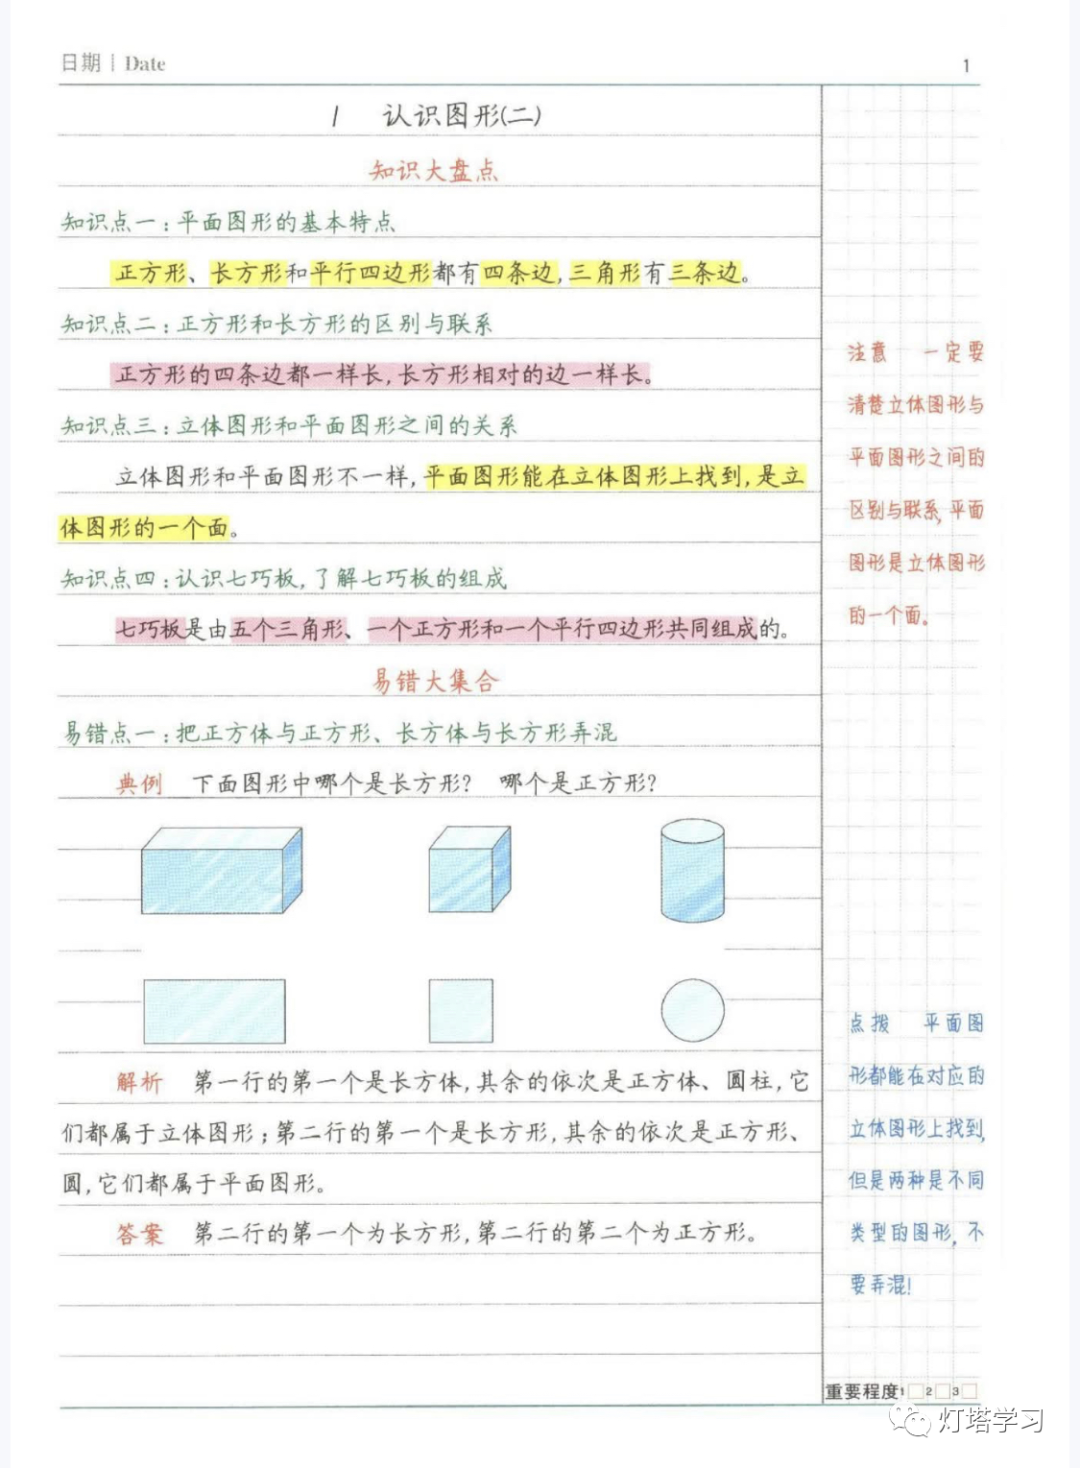 日期 | Date
1
1 认识图形(二)
知识大盘点
知识点一:平面图形的基本特点
正方形、长方形和平行四边形都有四条边,三角形有三条边。
知识点二:正方形和长方形的区别与联系
正方形的四条边都一样长,长方形相对的边一样长。
知识点三:立体图形和平面图形之间的关系
立体图形和平面图形不一样,平面图形能在立体图形上找到,是立
体图形的一个面。
知识点四:认识七巧板,了解七巧板的组成
七巧板是由五个三角形、一个正方形和一个平行四边形共同组成的。
易错大集合
易错点一:把正方体与正方形、长方体与长方形弄混
典例 下面图形中哪个是长方形? 哪个是正方形?
解析 第一行的第一个是长方体,其余的依次是正方体、圆柱,它
们都属于立体图形;第二行的第一个是长方形,其余的依次是正方形、
圆,它们都属于平面图形。
答案 第二行的第一个为长方形,第二行的第二个为正方形。
注意 一定要
清楚立体图形与
平面图形之间的
区别与联系,平面
图形是立体图形
的一个面。
点拨 平面图
形都能在对应的
立体图形上找到,
但是两种是不同
类型的图形,不
要弄混!
重要程度 1 2 3
灯塔学习